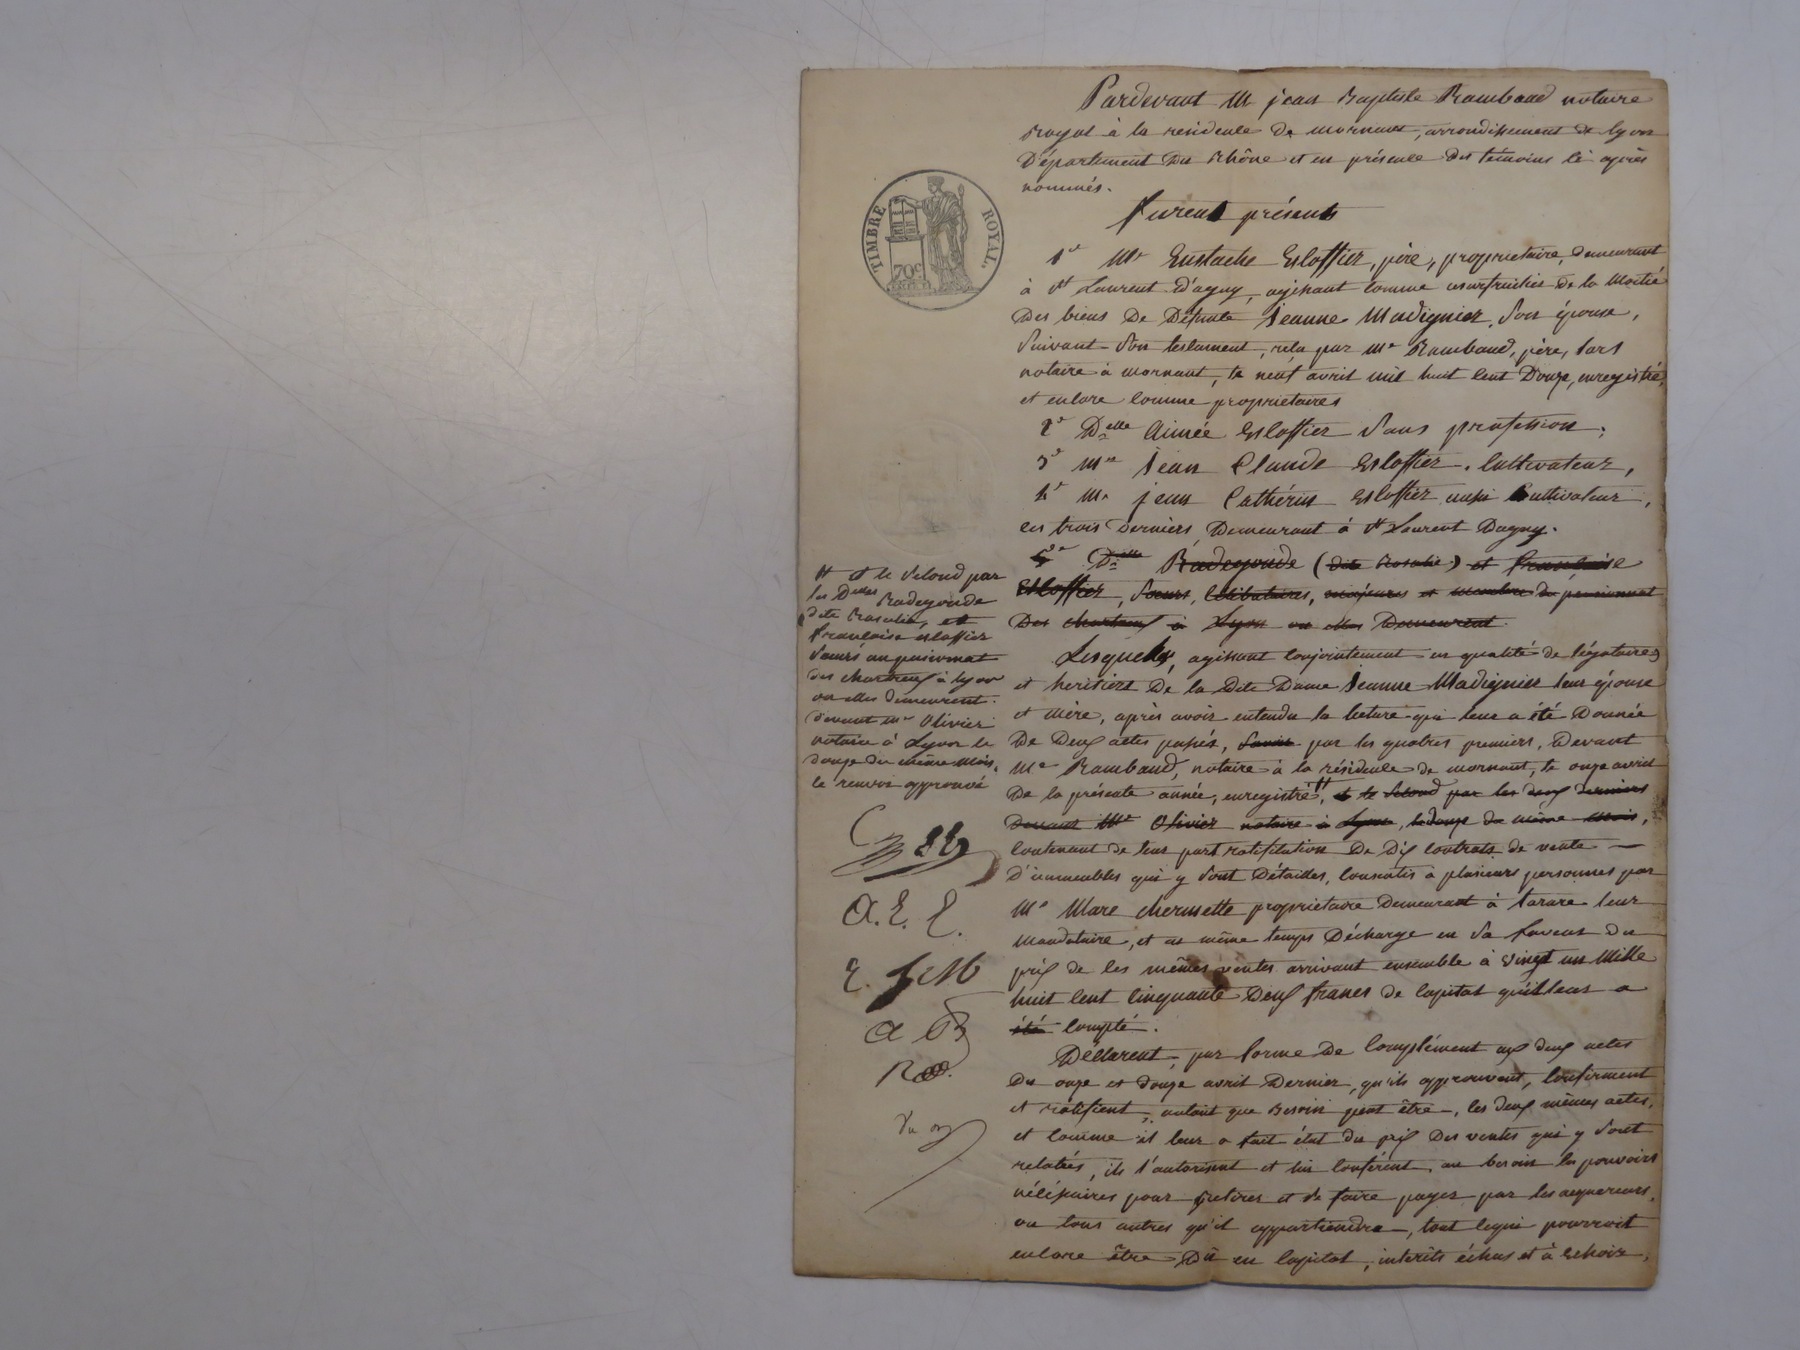 Pardevant Me jean Baptiste Rambaud notaire
Royal à la residence de mornant, arrondissement de lyon
Département du Rhône et en présence des témoins ci après
nommés.
furent présents
1° Mr Eustache Escoffier, père, propriétaire, demeurant
à St Laurent d'agny, agissant comme usufruitier de la Moitié
des biens De Défunte Jeanne Madignier, son épouse,
suivant son testament, recu par Me Rambaud, père, lors
notaire à mornant, le neuf avril mil huit cent Douze, enregistré,
et encore comme propriétaires
2° Delle Aimée Escoffier sans profession,
3° Mr Jean Claude Escoffier, cultivateur,
4° Mr jean Cathérin Escoffier aussi Cultivateur,
ces trois derniers Demeurant à St Laurent Dagny.
5° Delle Radegonde (dite Rosalie) et françoise
Escoffier, soeurs, célibataires, majeures et membres du pensionnat
Des chartreux à Lyon ou elles Demeurent.
Lesquels, agissant conjointement en qualité de légataires
et heritiers De la Dite Dame Jeanne Madignier leur épouse
et mère, après avoir entendu la lecture qui leur a été Donnée
De Deux actes passés, savoir par les quatres premiers, Devant
Me Rambaud, notaire à la résidence de mornant, le onze avril
De la présente année, enregistré, # et le second par les deux derniers
Devant Me Olivier notaire à Lyon, le douze du même mois,
contenant de leur part ratification De Dix contrats de vente
D'immeubles qui y sont Détaillés, consentis a plusieurs personnes par
Mr Marc chermette propriétaire Demeurant à tarare leur
mandataire, et en même temps Décharge en sa faveur du
prix de ces mêmes ventes arrivant ensemble à vingt un Mille
huit cent cinquante Deux francs de capital qu'il leur a
été compté.
Déclarent, par forme De Complément aux deux actes
Du onze et douze avril Dernier, qu'ils approuvent, confirment
et ratifient, autant que Besoin peut être, les deux mêmes actes,
et comme il leur a fait état du prix Des ventes qui y sont
relatées, ils l'autorisent et lui confèrent, au besoin les pouvoirs
nécéssaires pour retirer et se faire payer par les acquereurs,
ou tous autres qu'il appartiendra, tout cequi pourroit
encore être Dû en capital, intérêts échus et à échoir,
# et le second par
les Delles Radegonde
dite Rosalie, et
françoise escoffier
soeurs au pensionnat
des chartreux à lyon
ou elles demeurent.
devant me Olivier
notaire à Lyon le
douze du même mois.
le renvoi approuvé
A. E. E.
TIMBRE ROYAL.
70c